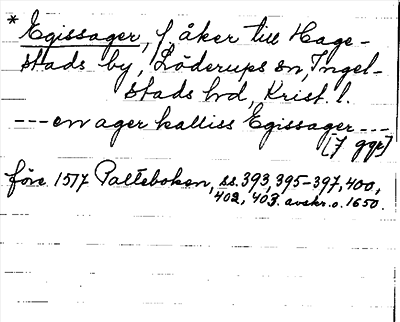 * Egissager, f åker till Hage-
stads by, Löderups sn, Ingel-
stads hd, Krist. l.
--- en ager kalliss Egissager ---
[7 ggr]
före 1517 Palteboken, ss. 393, 395-397, 400,
402, 403. avskr. o. 1650.